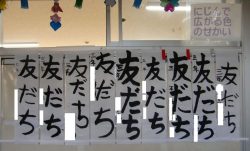 にじんで
広がる色
のせかい
友だち
友だち
友だち
友だち
友だち
友だち
友だち
友だち
友だち